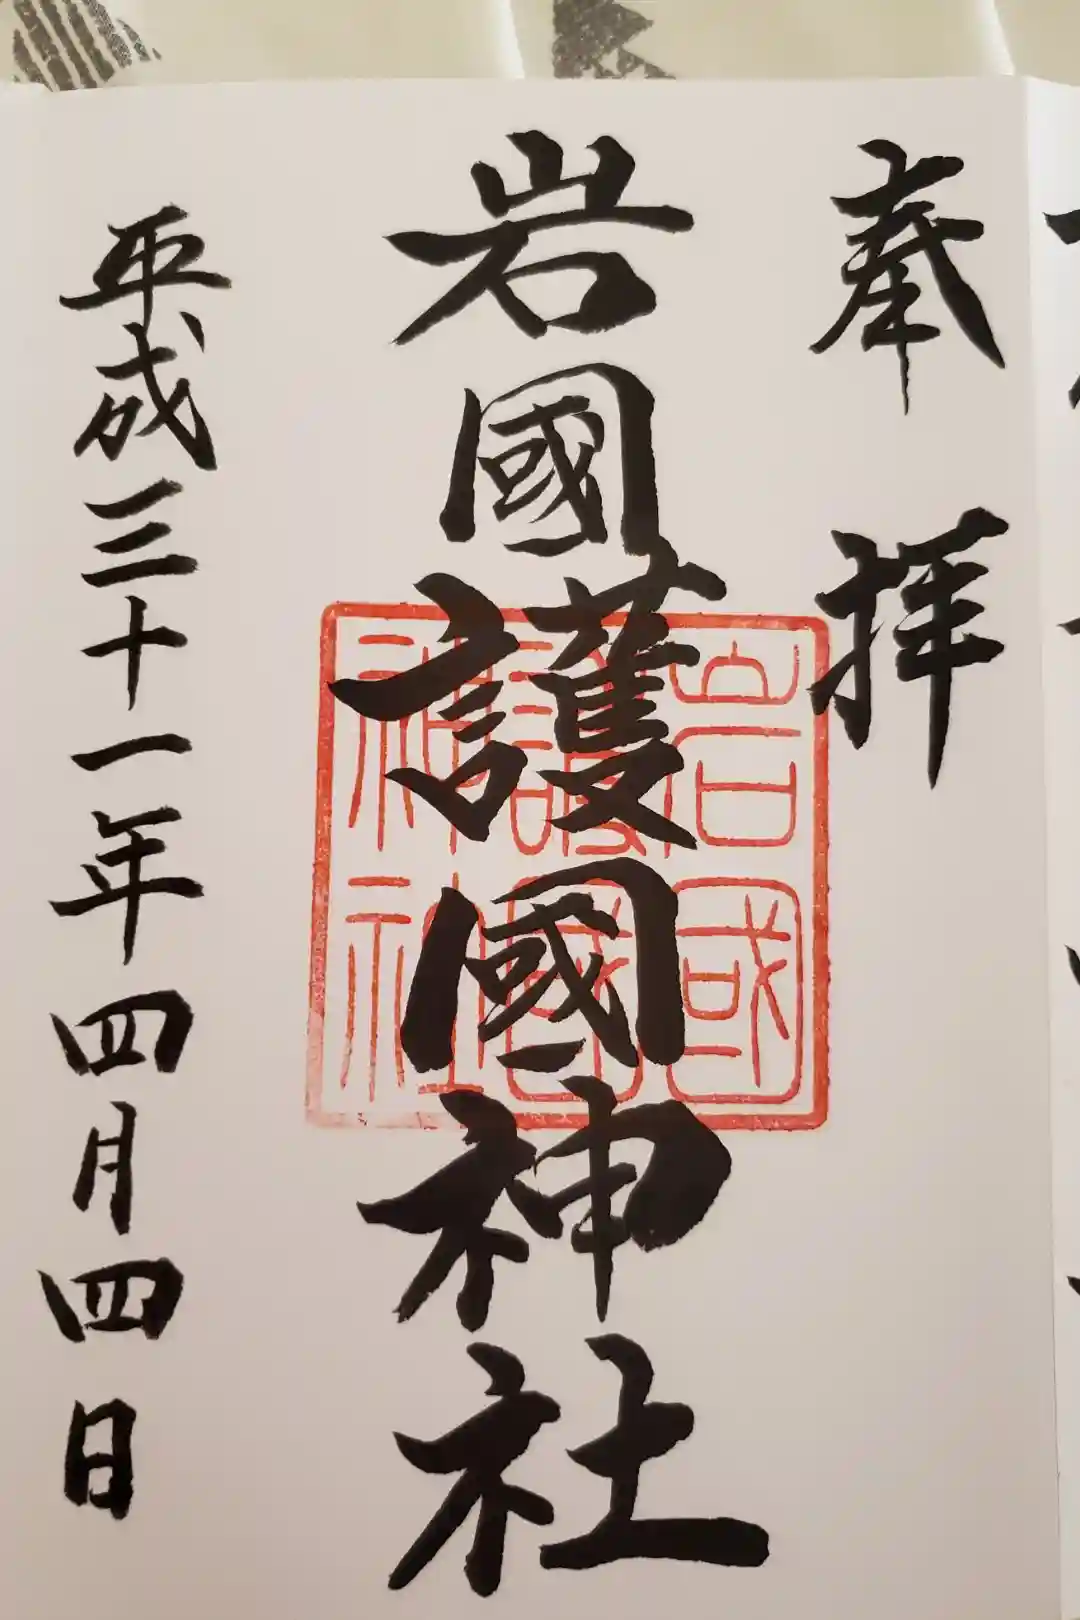 奉拝
岩國護國神社
岩國
護國
神社
平成三十一年四月四日